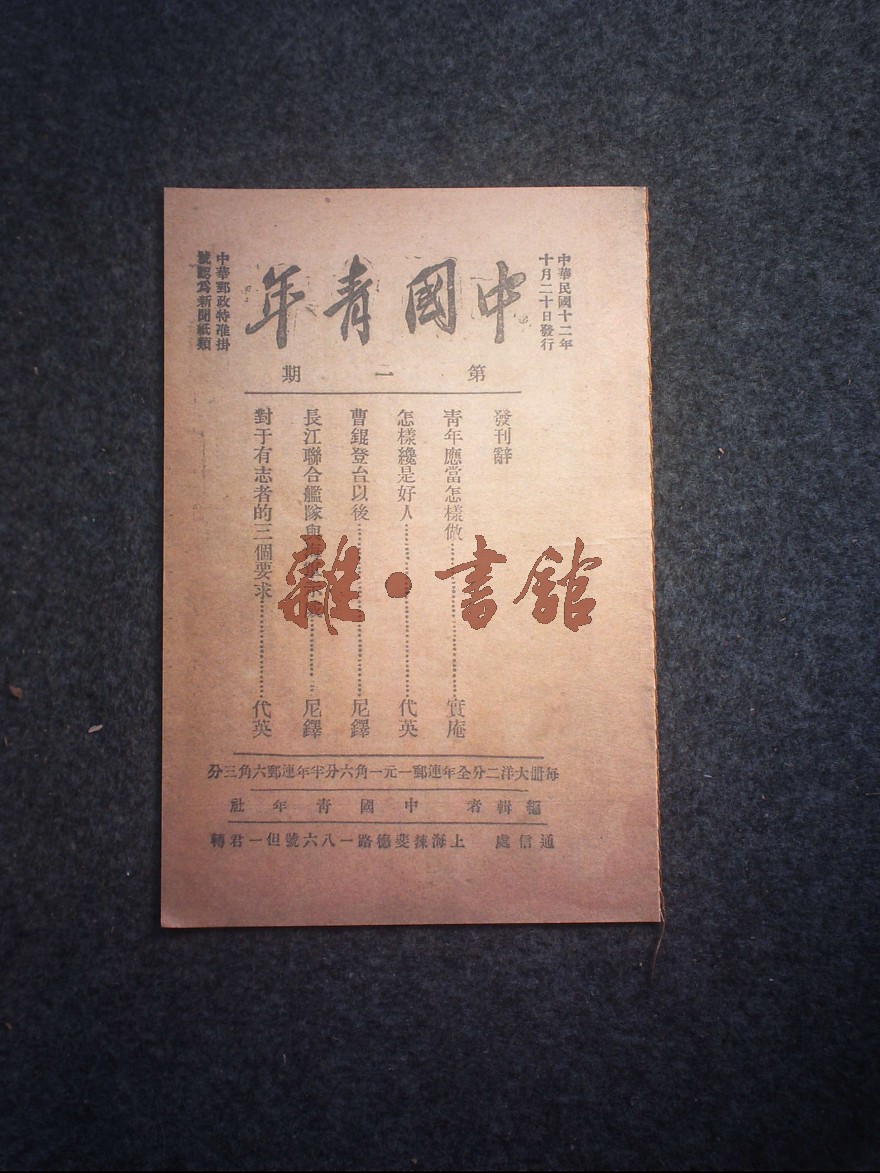 中華民國十二年
十月二十日發行
中國青年
中華郵政特准掛
號認爲新聞紙類
第一期
發刊辭
青年應當怎樣做……實庵
怎樣纔是好人……代英
曹錕登台以後……尼鐸
長江聯合艦隊與……尼鐸
對于有志者的三個要求……代英
雜·書館
每册大洋二分全年連郵一元一角六分半年連郵六角三分
編輯者 中國青年社
通信處 上海辣斐德路一八六號但一君轉